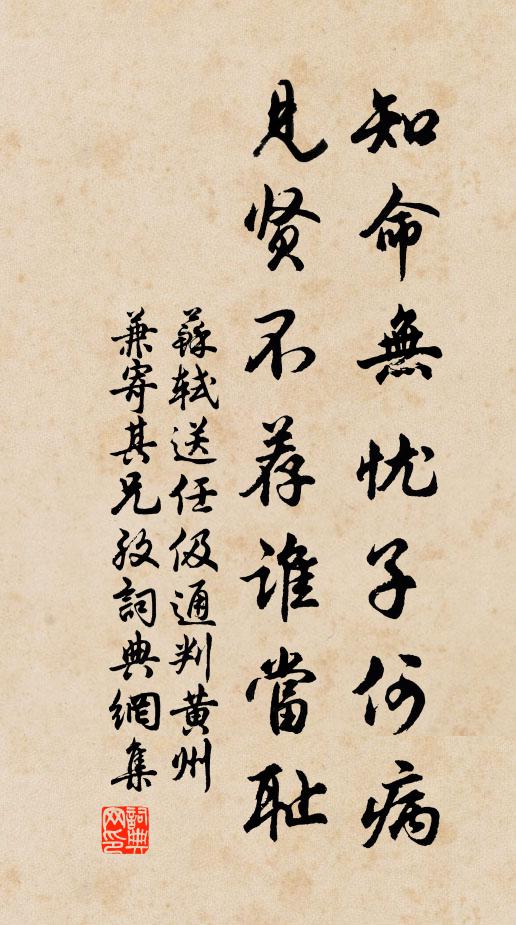 知命無忧子何病
見贤不荐谁當耻
蘇軾送任伋通判黄州
兼寄其兄孜詞典網集
詞典网印